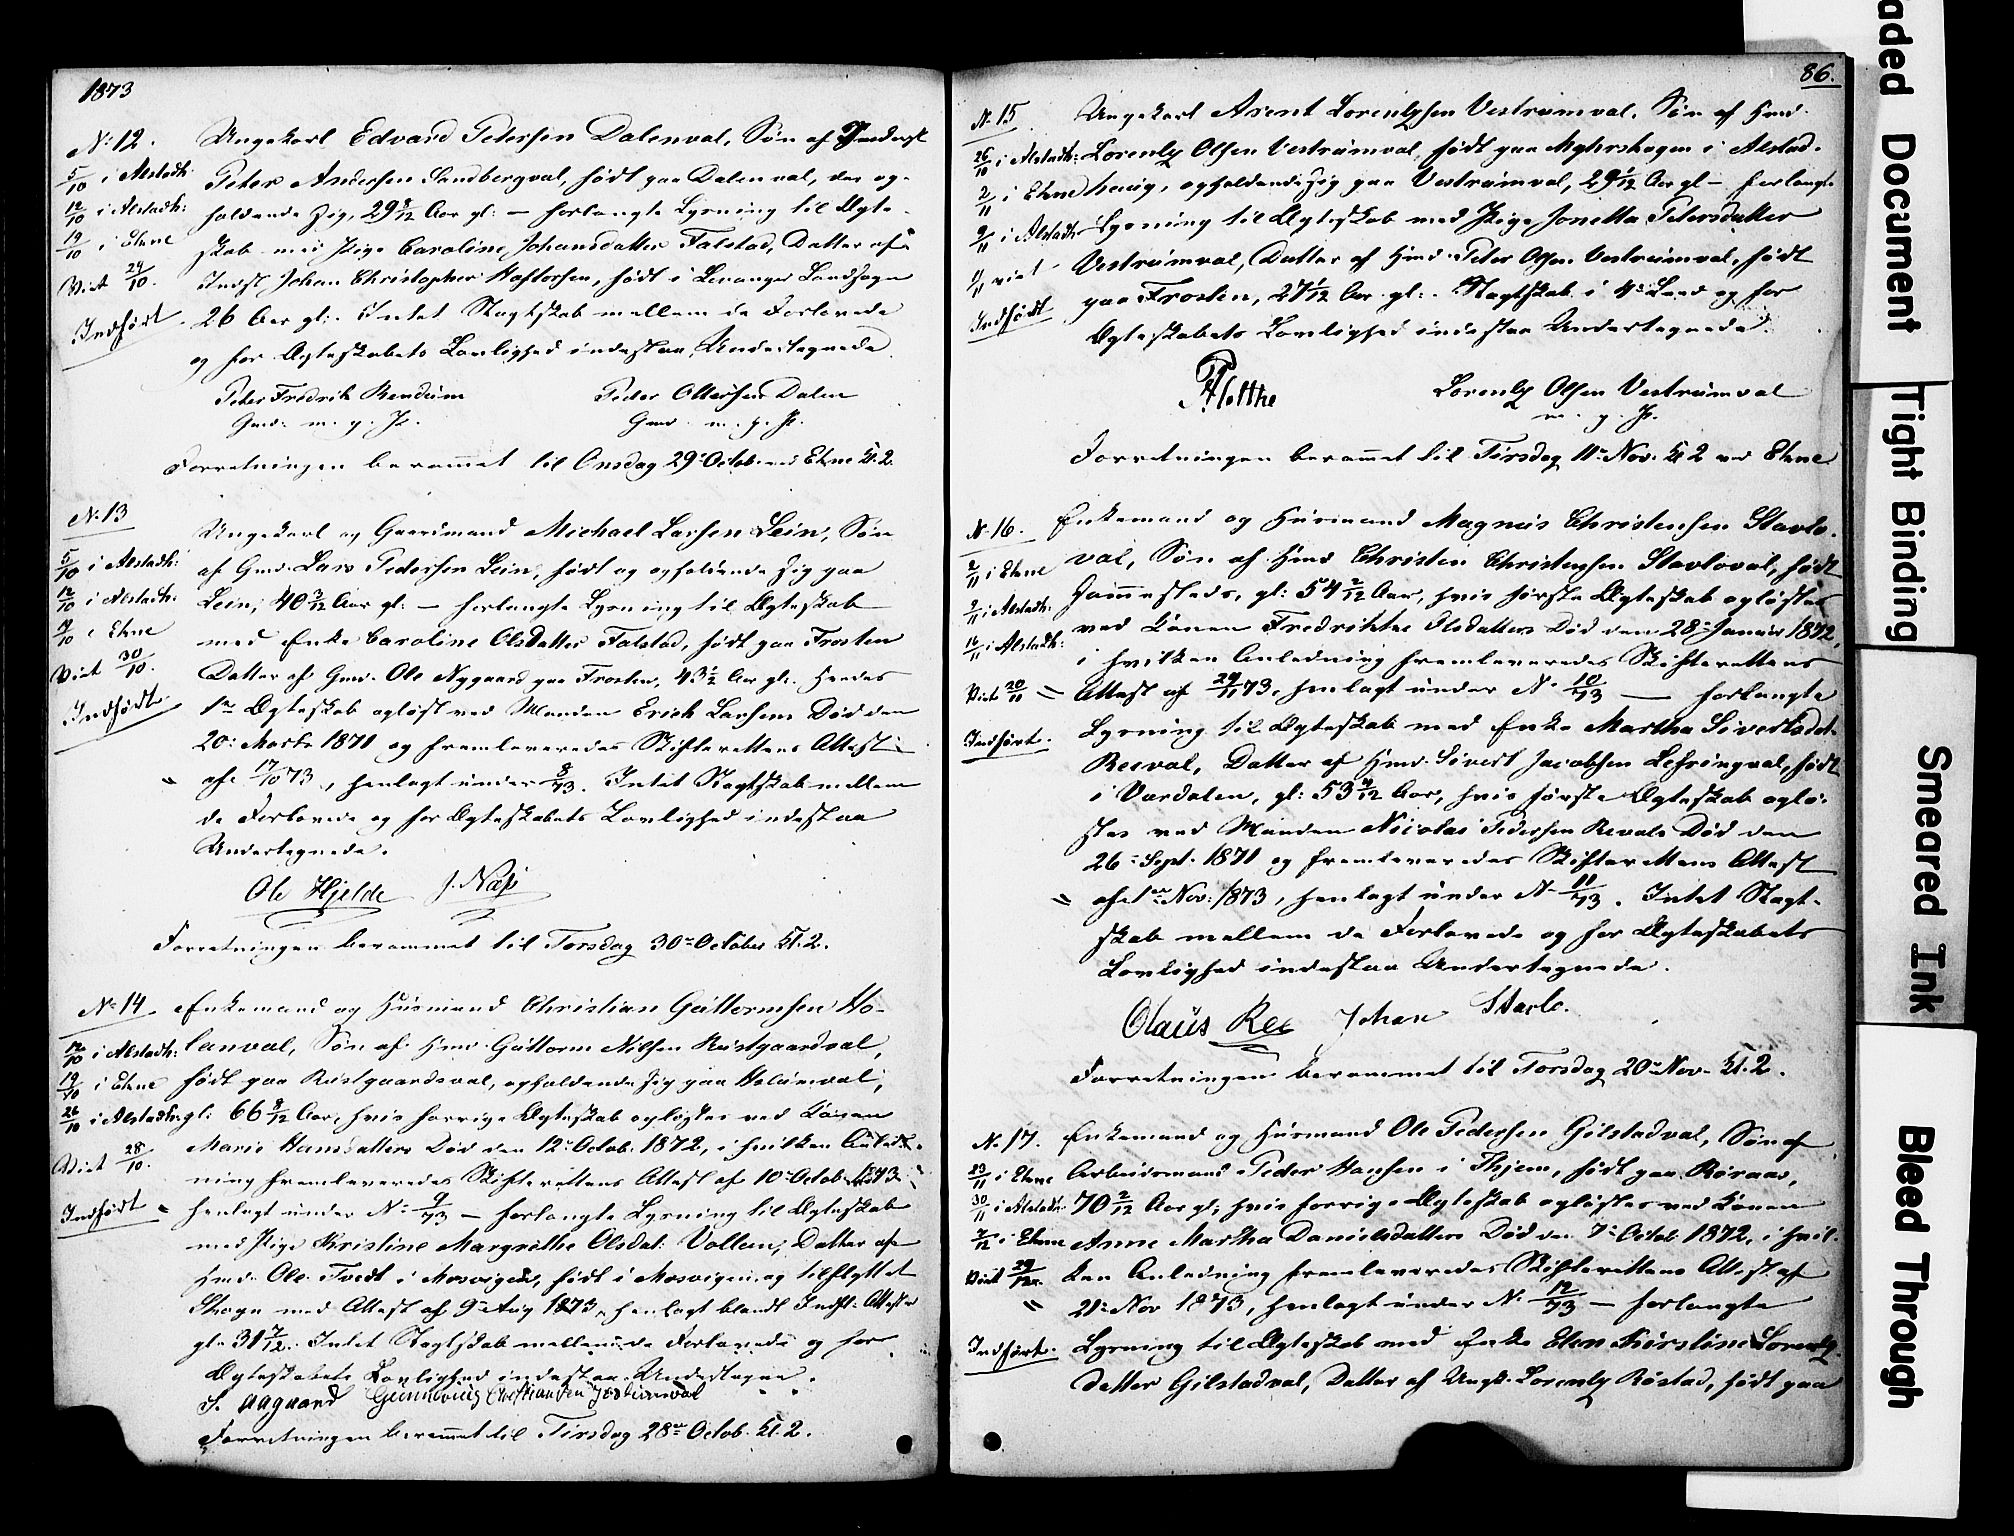 1873
N. 12.
5/10 i Alstadh:
12/10 i Alstadh:
19/10 i Ekne
Viet 29/10.
Indført
Ungekarl Edvard Petersen Dalenval, Søn af Inderst
Peter Andersen Sandbergval, født paa Dalenval, der op-
holdende sig, 29 8/12 Aar gl: – forlangte Lysning til Ægte-
skab med Pige Caroline Johansdatter Falstad, Datter af
Indst Johan Christopher Hoflossen, født i Levanger Landsogn
26 Aar gl:. Intet Slægtskab mellem de Forlovede
og for Ægteskabets Lovlighed indestaa Undertegnede
Peter Fredrik Rendum Peder Ottersen Dalen
Gmd: m. p. P. Gmd. m. p. P.
Forretningen berammet til Onsdag 29: Octob. ved Ekne Kl. 2.
N. 13
5/10 i Alstadh:
12/10 i Alstadh:
19/10 i Ekne
Viet 30/10.
Indført
Ungekarl og Gaardmand Michael Larsen Lein, Søn
af Gmd. Lars Pedersen Lein, født og opholdende sig paa
Lein, 40 3/12 Aar gl: – forlangte Lysning til Ægteskab
med Enke Caroline Olsdatter Falstad, født paa Frosten
Datter af Gmd. Ole Nygaard paa Frosten, 43 1/2 Aar gl:. Hendes
1ste Ægteskab opløst ved Manden Erich Larsens Død den
20: Marts 1871 og fremleveredes Skifterettens Attest
" af 17/10 73, henlagt under 8/73. Intet Slægtskab mellem
de Forlovede og for Ægteskabets Lovlighed indestaa
Undertegnede.
Ole Hjelde J. Næss
Forretningen berammet til Torsdag 30te October Kl. 2.
N. 14
12/10 i Alstadh:
19/10 i Ekne
26/10 i Alstadh:
Viet 28/10.
Indført "
Enkemand og Husmand Christian Guttormsen Ho-
lanval, Søn af Hmd. Guttorm Nilsen Rustgaardval,
født paa Rustgaardsval, opholdende sig paa Holanval,
gl: 66 8/12 Aar, hvis forrige Ægteskab opløstes ved Konen
Marie Hansdatters Død den 12: Octob. 1872, i hvilken Anled-
ning fremleveredes Skifterettens Attest af 10: Octob. 1873
henlagt under N. 9/73 – forlangte Lysning til Ægteskab
med Pige Kristine Margrethe Olsdat: Vollen, Datter af
Hmd. Ole Tvedt i Mosvigen, født i Mosvigen og tilflyttet
Skogn med Attest af 9: Aug 1873, henlagt blandt Indfl: Attester
gl. 31 7/12. Intet Slægtskab mellem de Forlovede og for
Ægteskabets Lovlighed indestaa Undertegne.
S. Aagaard Christiansen
Forretningen berammet til Tirsdag 28de Octob. Kl. 2.
86.
N. 15
26/10 i Alstadh:
2/11 i Ekne
9/11 i Alstadh:
11/11 viet
Indført
Ungekarl Arent Lorentzsen Vestrumval, Søn af Hmd.
Lorentz Olsen Vestrumval, født paa Myhrshagen i Alstad-
houg, opholdende sig paa Vestrumval, 29 1/12 Aar gl – forlangte
Lysning til Ægteskab med Pige Jonetta Petersdatter
Vestrumval, Datter af Hmd. Peter Olsen Vestrumval, født
paa Frosten, 27 1/12 Aar gl:. Slægtskab i 4: Leed og for
Ægteskabets Lovlighed indestaa Undertegnede.
Lorentz Olsen Vestrumval
m. p. P.
Forretningen berammet til Tirsdag 11te Nov. Kl 2 ved Ekne.
N. 16.
2/11 i Ekne
9/11 i Alstadh:
16/11 i Alstadh:
Viet 20/11 "
Indført.
Enkemand og Husmand Magnus Christensen Stavlo-
val, Søn af Hmd Christen Christensen Stavloval, født
sammesteds, gl: 54 2/12 Aar, hvis første Ægteskab opløstes
ved Konen Fredrikke Olsdatters Død den 28: Januar 1872,
i hvilken Anledning fremleveredes Skifterettens
Attest af 24/11 73, henlagt under N. 10/73 – forlangte
Lysning til Ægteskab med Enke Martha Sivertsdat:
Reeval, Datter af Hmd. Sivert Jacobsen Lehringval, født
i Værdalen, gl: 53 4/12 Aar, hvis første Ægteskab oplø-
stes ved Manden Nicolai Pedersen Revals Død den
26: Sept. 1871 og fremleveredes Skifterettens Attest
" af 1ste Nov: 1873, henlagt under N. 11/73. Intet Slægt-
skab mellem de Forlovede og for Ægteskabets
Lovlighed indestaa Undertegnede.
Olaus Ree Johan Starlo.
Forretningen berammet til Torsdag 20de Nov. Kl. 2.
N. 17.
23/11 i Ekne
30/11 i Alstadh:
7/12 i Ekne
Viet 29/12.
"
Indført.
Enkemand og Husmand Ole Pedersen Gilstadval, Søn af
Arbeidsmand Peder Hansen i Thjem, født paa Røraas,
70 2/12 Aar gl; hvis forrige Ægteskab opløstes ved Konen
Anne Martha Danielsdatters Død den 7: Octob. 1872, i hvil-
ken Anledning fremleveredes Skifterettens Attest af
21: Nov 1873, henlagt under N. 12/73 – forlangte
Lysning til Ægteskab med Enke Elen Kirstine Lorentz-
datter Gilstadval, Datter af Ungk. Lorentz Røstad, født paa
aded Document
Tight Binding
Smeared Ink
Bleed Through